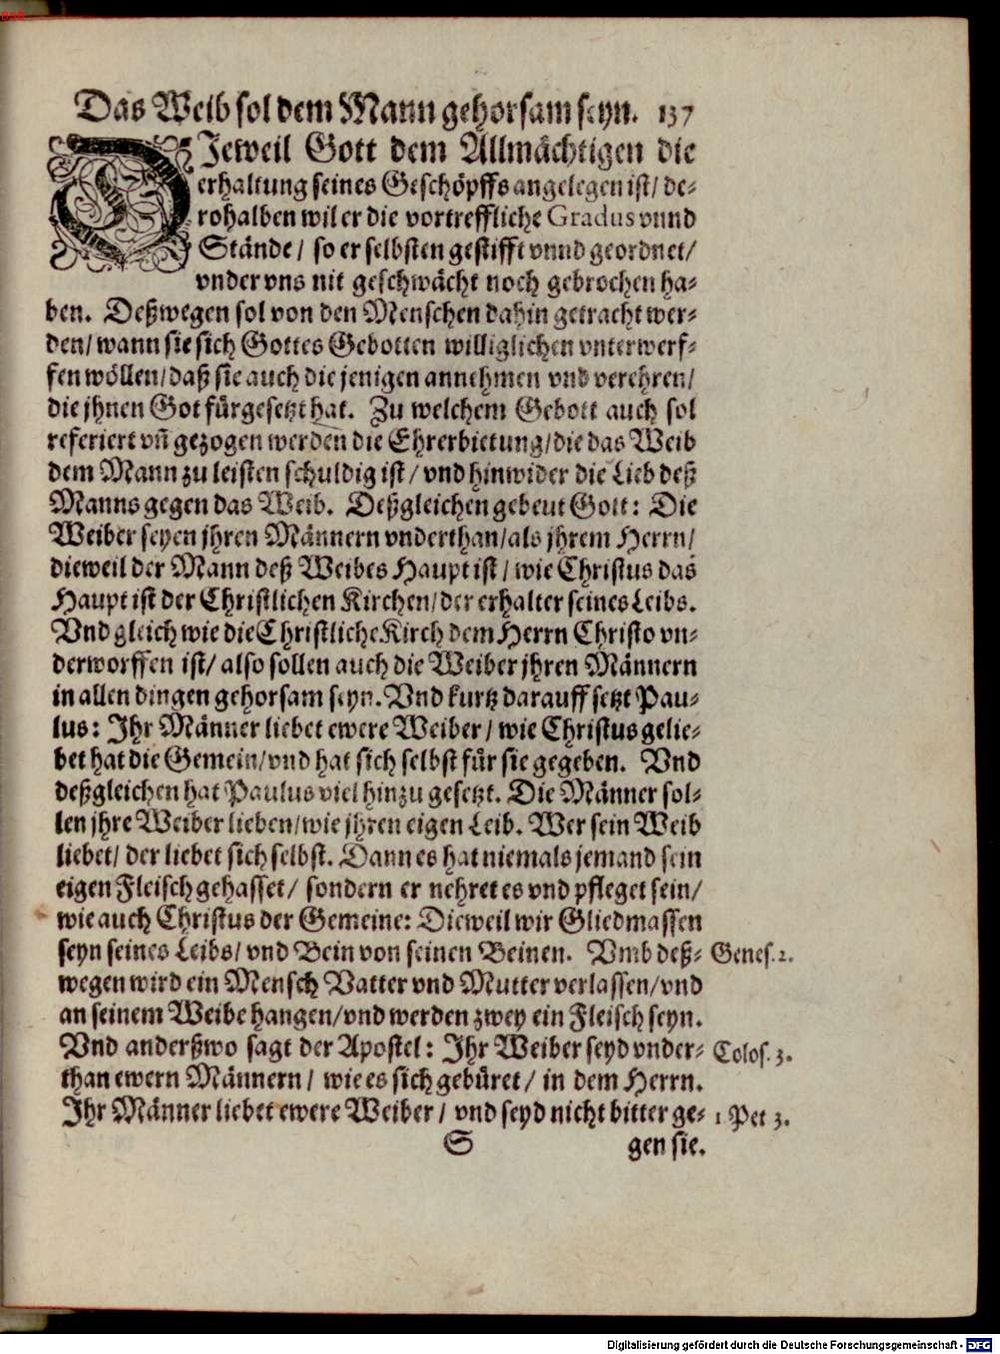 Das Weib sol dem Mann gehorsam seyn. 137
DJeweil Gott dem Allmächtigen die
erhaltung seines Geschöpffs angelegen ist/ de-
rohalben wil er die vortreffliche Gradus vnnd
Stände/ so er selbsten gestifft vnnd geordnet/
vnder vns nit geschwächt noch gebrochen ha-
ben. Deßwegen sol von den Menschen dahin getracht wer-
den/ wann sie sich Gottes Gebotten williglichen vnterwerf-
fen wöllen/ daß sie auch die jenigen annehmen vnd verehren/
die jhnen Got fürgesetzt hat. Zu welchem Gebott auch sol
referiert vn̄ gezogen werden die Ehrerbietung/ die das Weib
dem Mann zu leisten schuldig ist/ vnd hinwider die Lieb deß
Manns gegen das Weib. Deßgleichen gebeut Gott: Die
Weiber seyen jhren Männern vnderthan/ als jhrem Herrn/
dieweil der Mann deß Weibes Haupt ist/ wie Christus das
Haupt ist der Christlichen Kirchen/ der erhalter seines Leibs.
Vnd gleich wie die Christliche Kirch dem Herrn Christo vn-
derworffen ist/ also sollen auch die Weiber jhren Männern
in allen dingen gehorsam seyn. Vnd kurtz darauff setzt Pau-
lus: Jhr Männer liebet ewere Weiber/ wie Christus gelie-
bet hat die Gemein/ vnd hat sich selbst für sie gegeben. Vnd
deßgleichen hat Paulus viel hinzu gesetzt. Die Männer sol-
len jhre Weiber lieben/ wie jhren eigen Leib. Wer sein Weib
liebet/ der liebet sich selbst. Dann es hat niemals jemand sein
eigen Fleisch gehasset/ sondern er nehret es vnd pfleget sein/
wie auch Christus der Gemeine: Dieweil wir Gliedmassen
seyn seines Leibs/ vnd Bein von seinen Beinen. Vmb deß- Genes. 2.
wegen wird ein Mensch Vatter vnd Mutter verlassen/ vnd
an seinem Weibe hangen/ vnd werden zwey ein Fleisch seyn.
Vnd anderßwo sagt der Apostel: Jhr Weiber seyd vnder- Colos. 3.
than ewern Männern/ wie es sich gebüret/ in dem Herrn.
Jhr Männer liebet ewere Weiber/ vnd seyd nicht bitter ge- 1 Pet 3.
S gen sie.
Digitalisierung gefördert durch die Deutsche Forschungsgemeinschaft - DFG